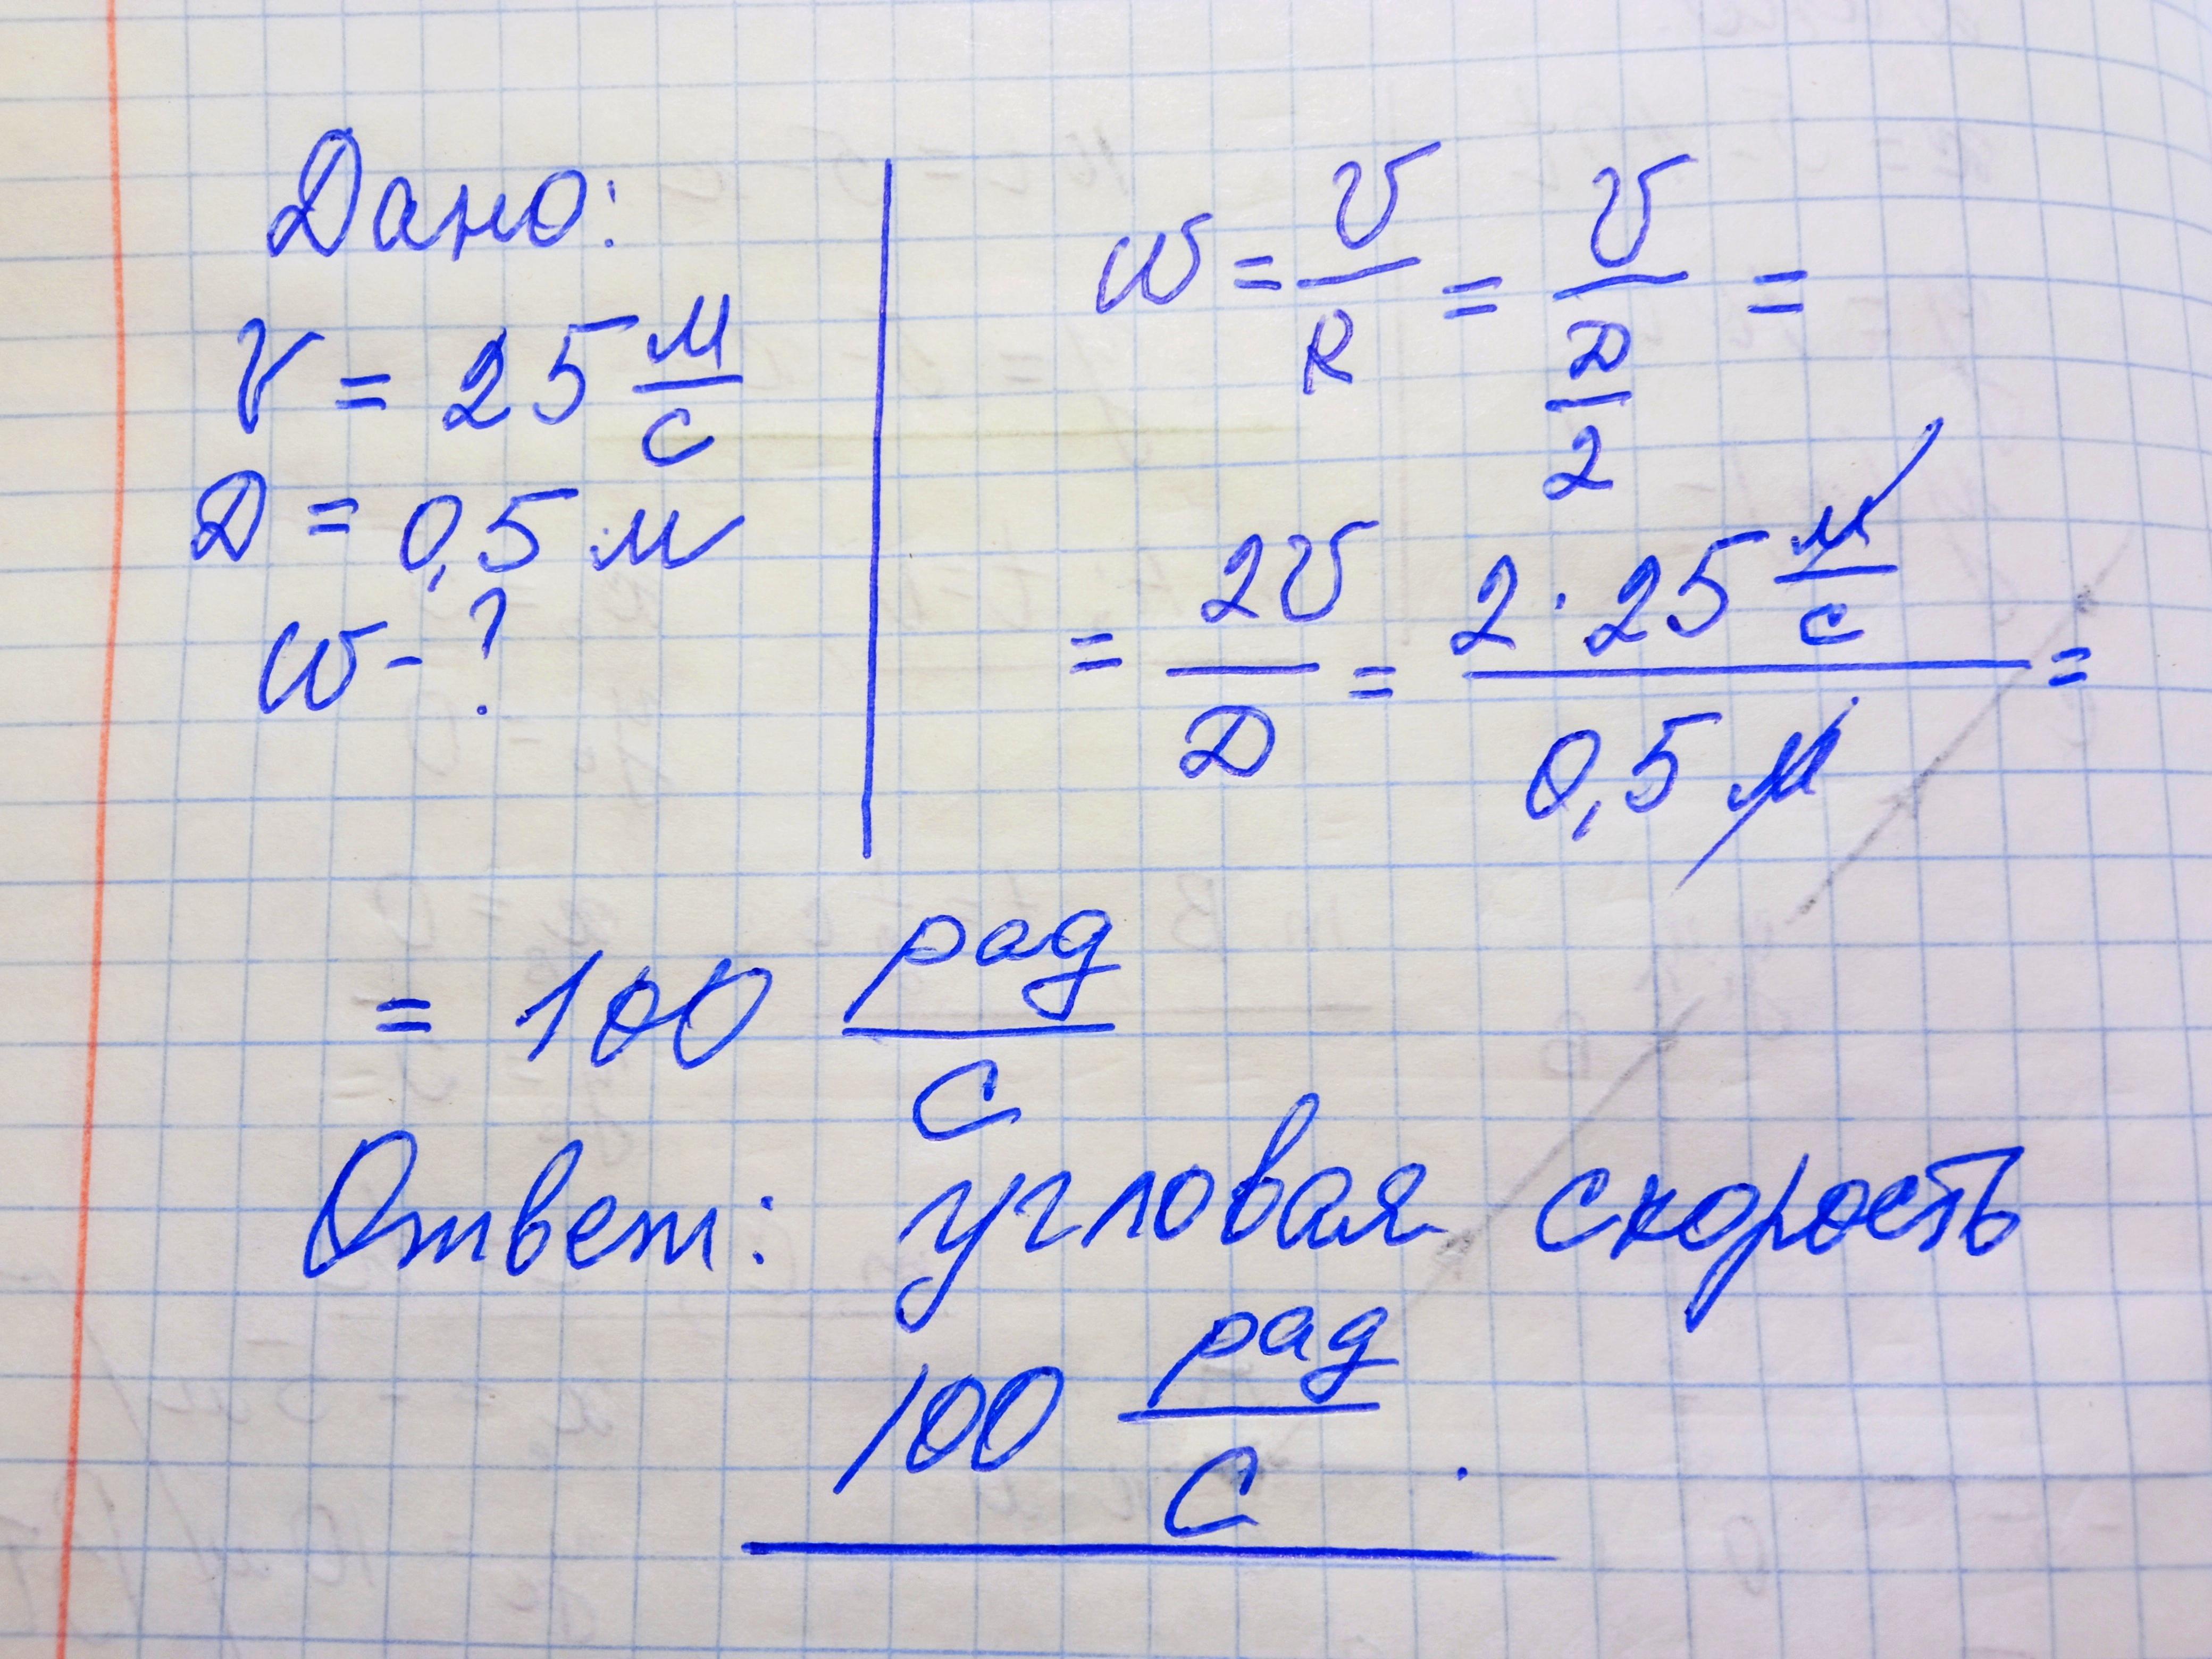 Дано:
V = 25 м/с
D = 0,5 м
ω - ?
ω = v/R = v/(D/2) =
= 2v/D = (2 · 25 м/с)/(0,5 м) =
= 100 рад/с
Ответ: угловая скорость
100 рад/с .